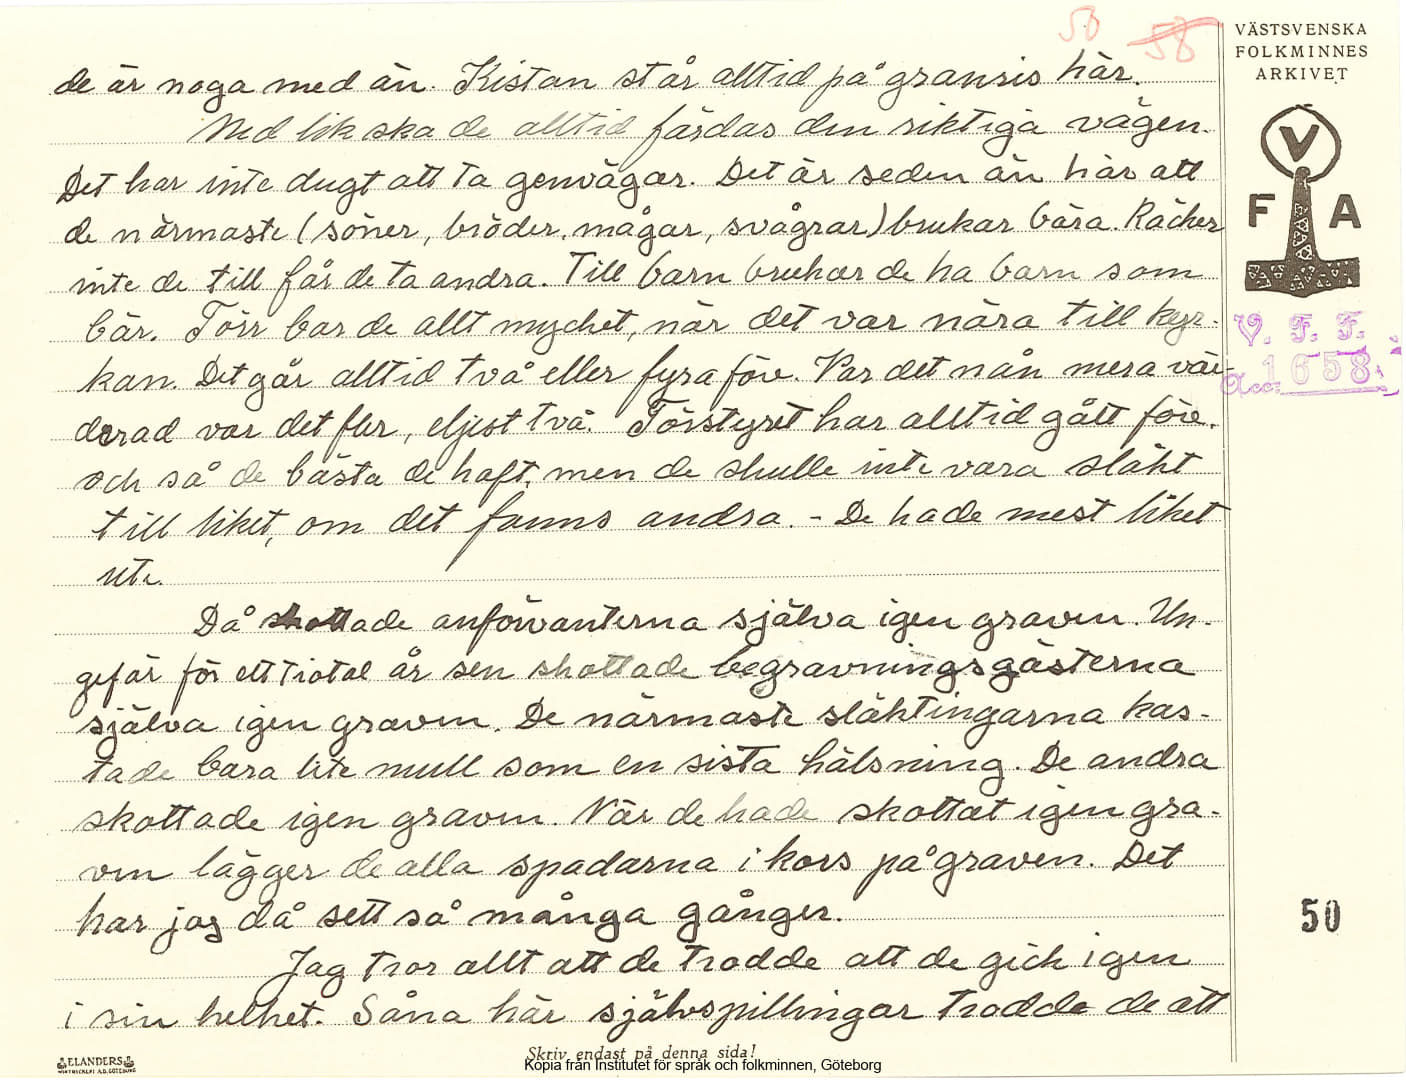 50 58
VÄSTSVENSKA
FOLKMINNES
ARKIVET
V
F A
V. F. F.
Acc: 1658
de är noga med än. Kistan står alltid på granris här.
Med lik ska de alltid färdas den riktiga vägen.
Det har inte dugt att ta genvägar. Det är seden än här att
de närmaste (söner, bröder, mågar, svågrar) brukar bära. Räcker
inte de till får de ta andra. Till barn brukar de ha barn som
bär. Förr bar de allt mycket, när det var nära till kyr-
kan. Det går alltid två eller fyra föv. Var det nån mera vär-
derad var det fler, eljest två. Förstyret har alltid gått före.
och så de bästa de haft, men de skulle inte vara släkt
till liket, om det fanns andra. - De hade mest liket
ute.
Då skottade anförvanterna själva igen graven. Un-
gefär för ett tiotal år sen skottade begravningsgästerna
själva igen graven. De närmaste släktingarna kas-
tade bara lite mull som en sista hälsning. De andra
skottade igen graven. När de hade skottat igen gra-
ven lägger de alla spadarna i kors på graven. Det
har jag då sett så många gånger.
Jag tror allt att de trodde att de gick igen
i sin helhet. Såna här självspillingar trodde de att
50
ELANDERS
Skriv endast på denna sida!
Kopia från Institutet för språk och folkminnen, Göteborg